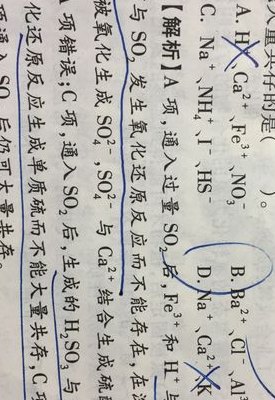 量共存的是( )。
A. H⁺、Ca²⁺、Fe³⁺、NO₃⁻
B. Ba²⁺、Cl⁻、Al³
C. Na⁺、NH₄⁺、I⁻、HS⁻
D. Na⁺、Ca²⁺、K
【解析】A 项，通入过量 SO₂ 后，Fe³⁺ 和 H⁺ 与
与 SO₂ 发生氧化还原反应而不能存在，在
被氧化生成 SO₄²⁻，SO₄²⁻ 与 Ca²⁺ 结合生成硫
项错误；C 项，通入 SO₂ 后，生成的 H₂SO₃ 与
化还原反应生成单质硫而不能大量共存，C 项
通入 SO 后仍可大量共存。